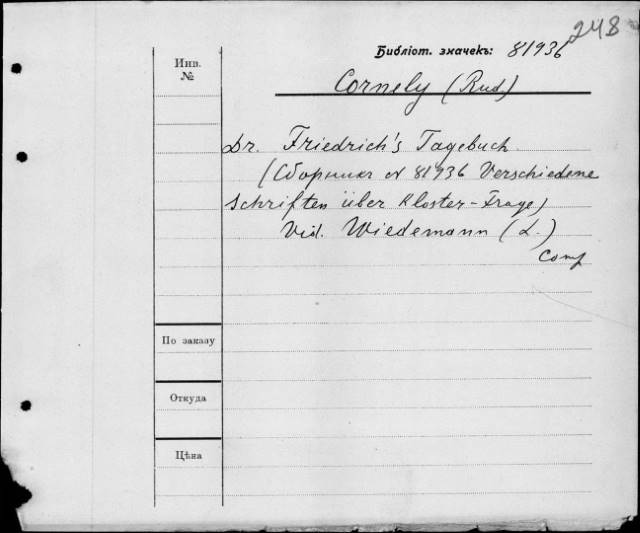 248
Библіот. значекъ: 81936
Инв.
№
Cornely (Rud)
Dr. Friedrich's Tagebuch
(Сборникъ № 81936 Verschiedene
Schriften über Kloster-Frage)
Vid. Wiedemann (L.)
Comp
По заказу
Откуда
Цѣна